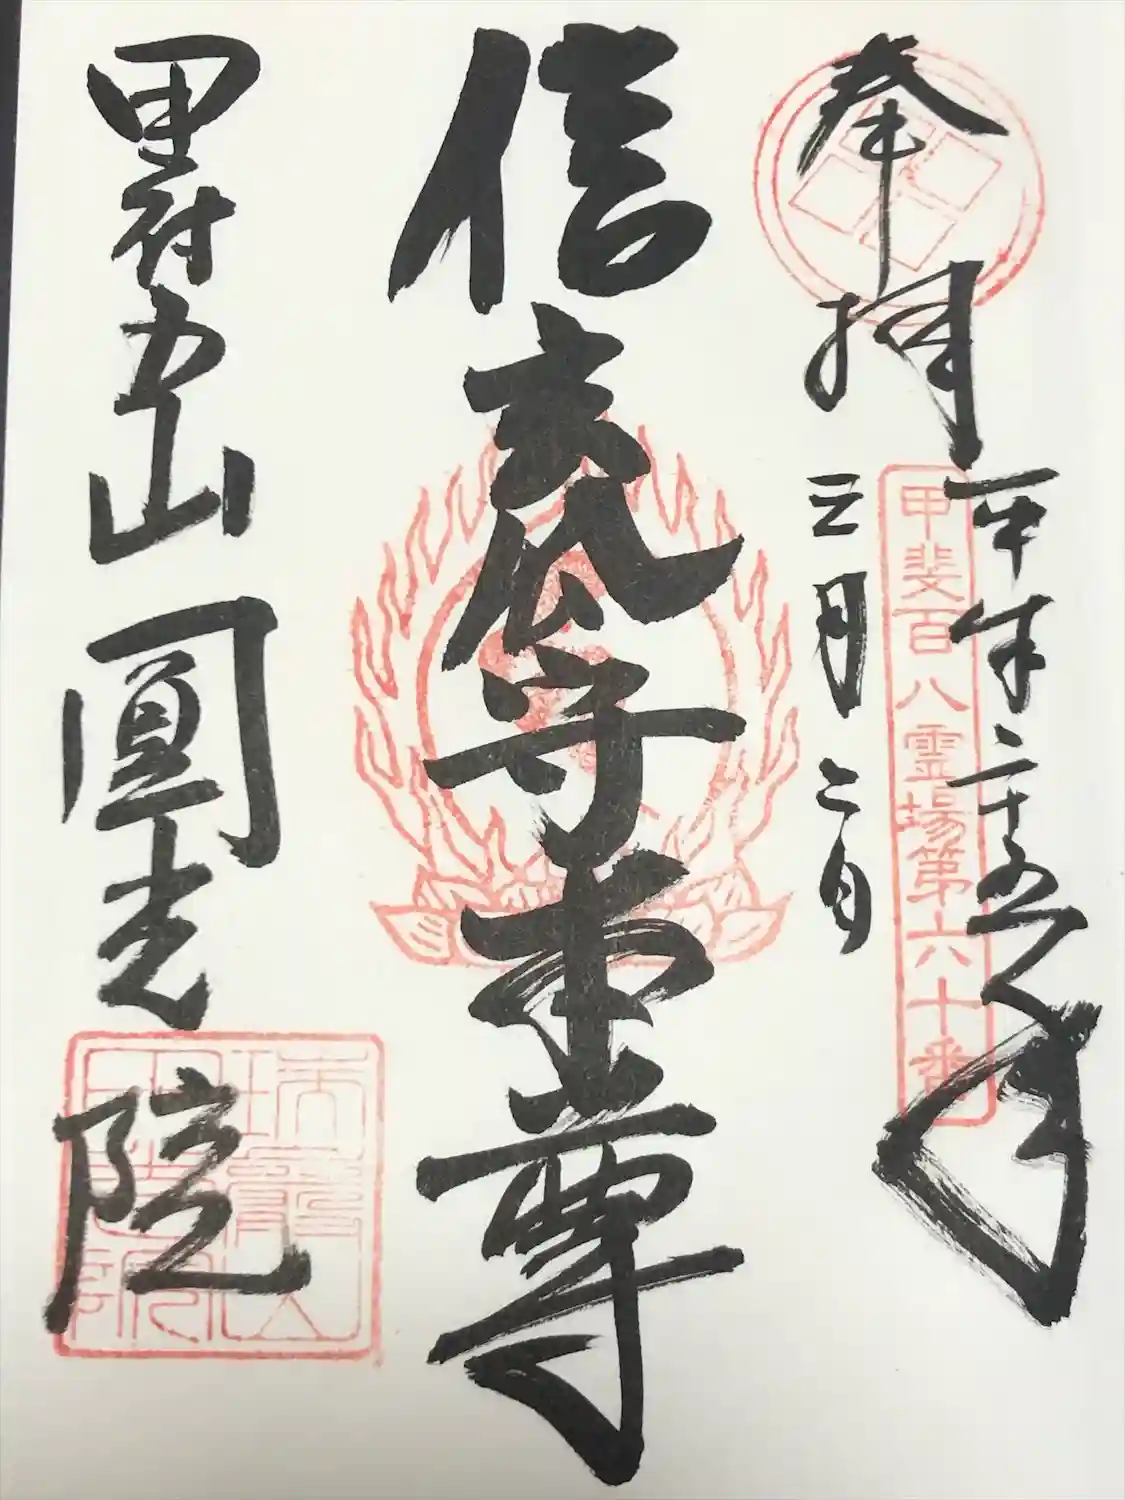 奉拝
平成二十年
三月二日
甲斐百八霊場第六十番
信玄公守本尊
甲府五山 圓光院